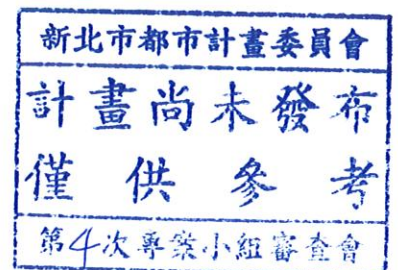 新北市都市計畫委員會
計畫尚未發布
僅供參考
第4次專案小組審查會